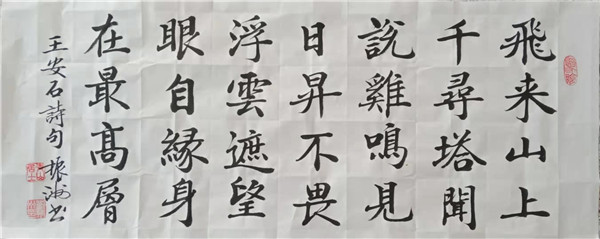 飛来山上
千尋塔聞
説雞鳴見
日昇不畏
浮雲遮望
眼自緣身
在最高層
王安石詩句 振洲书